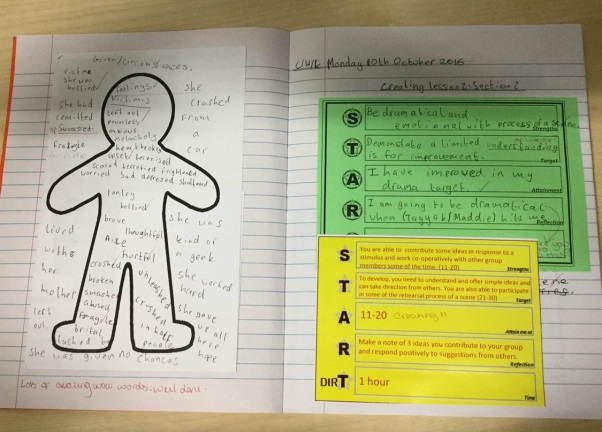 Given circumstances.
victim
she was
bullied
feelings
victims
left out
powerless
anxious
heartbroken
upset terrorised
scared terrified frightened
worried Sad depressed
she
crashed
from
a
car
She had
comitted
fragile
lonley
bullied
brave
thoughtful
hurtful
lived
with
her
mother
left
out
crushed
broken
smashed
abused
fragile
unleashed
crushed
in half
people
she was
kind of
a geek
she worked
hard
she gave
us all
hope
She was given no chances
Lots of amazing wow words. Well done.
C/W/K Monday 10th October 2016
Creating lesson 2: Section 2
S Be dramatical and
emotional with process of a scene.
Strengths
T Demonstate a limited understanding
is for improvement.
Target
A I have improved in my
drama target
Attainment
R I am going to be dramatical
when (Tayyab/Maddie) hits me
Reflection
S You are able to contribute some ideas in response to a
stimulus and work co-operatively with other group
members some of the time. (11-20)
Strengths
T To develop, you need to understand and offer simple ideas and
can take direction from others. You are also able to participate
in some of the rehearsal process of a scene (21-30)
Target
A 11-20 Creating
Attainment
R Make a note of 3 ideas you contribute to your group
and respond positively to suggestions from others.
Reflection
DIRT 1 hour
Time